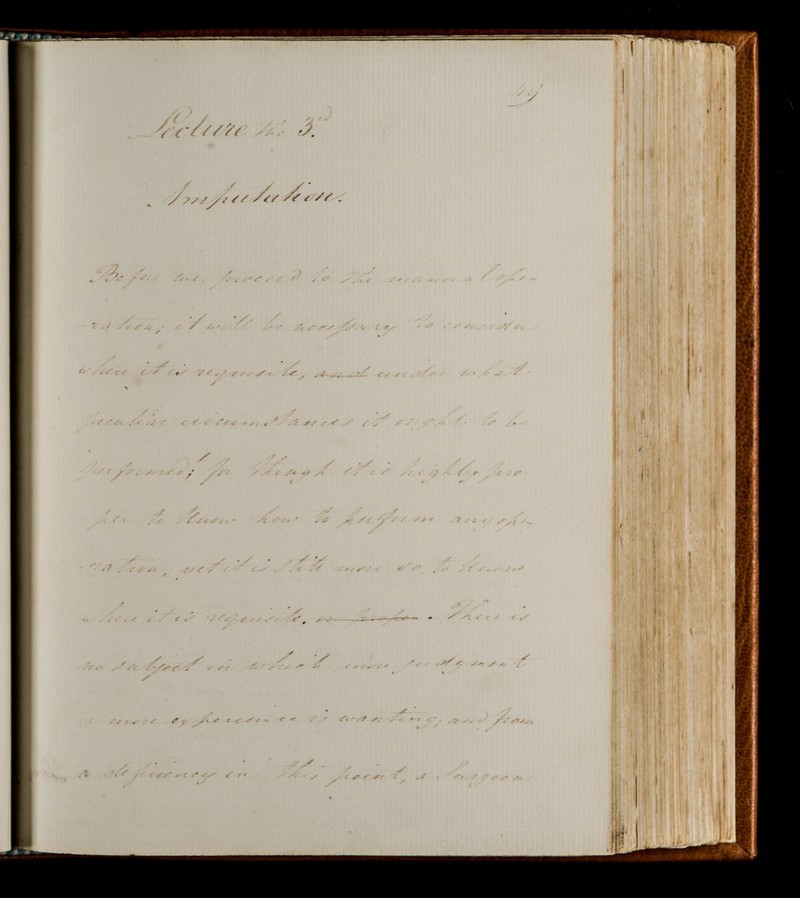 49
Lecture the 3.rd
Amputation.
Before we proceed to the manual ope-
-ration, it will be necessary to consider
when it is requisite, and under what
peculiar circumstances it ought to be
performed; for though it is highly pro-
-per to know how to perform any ope-
-ration, yet it is still more so, to know
when it is requisite. or proper. There is
no subject in which more judgment
or more experience is wanting; and from
a deficiency in this point, a Surgeon